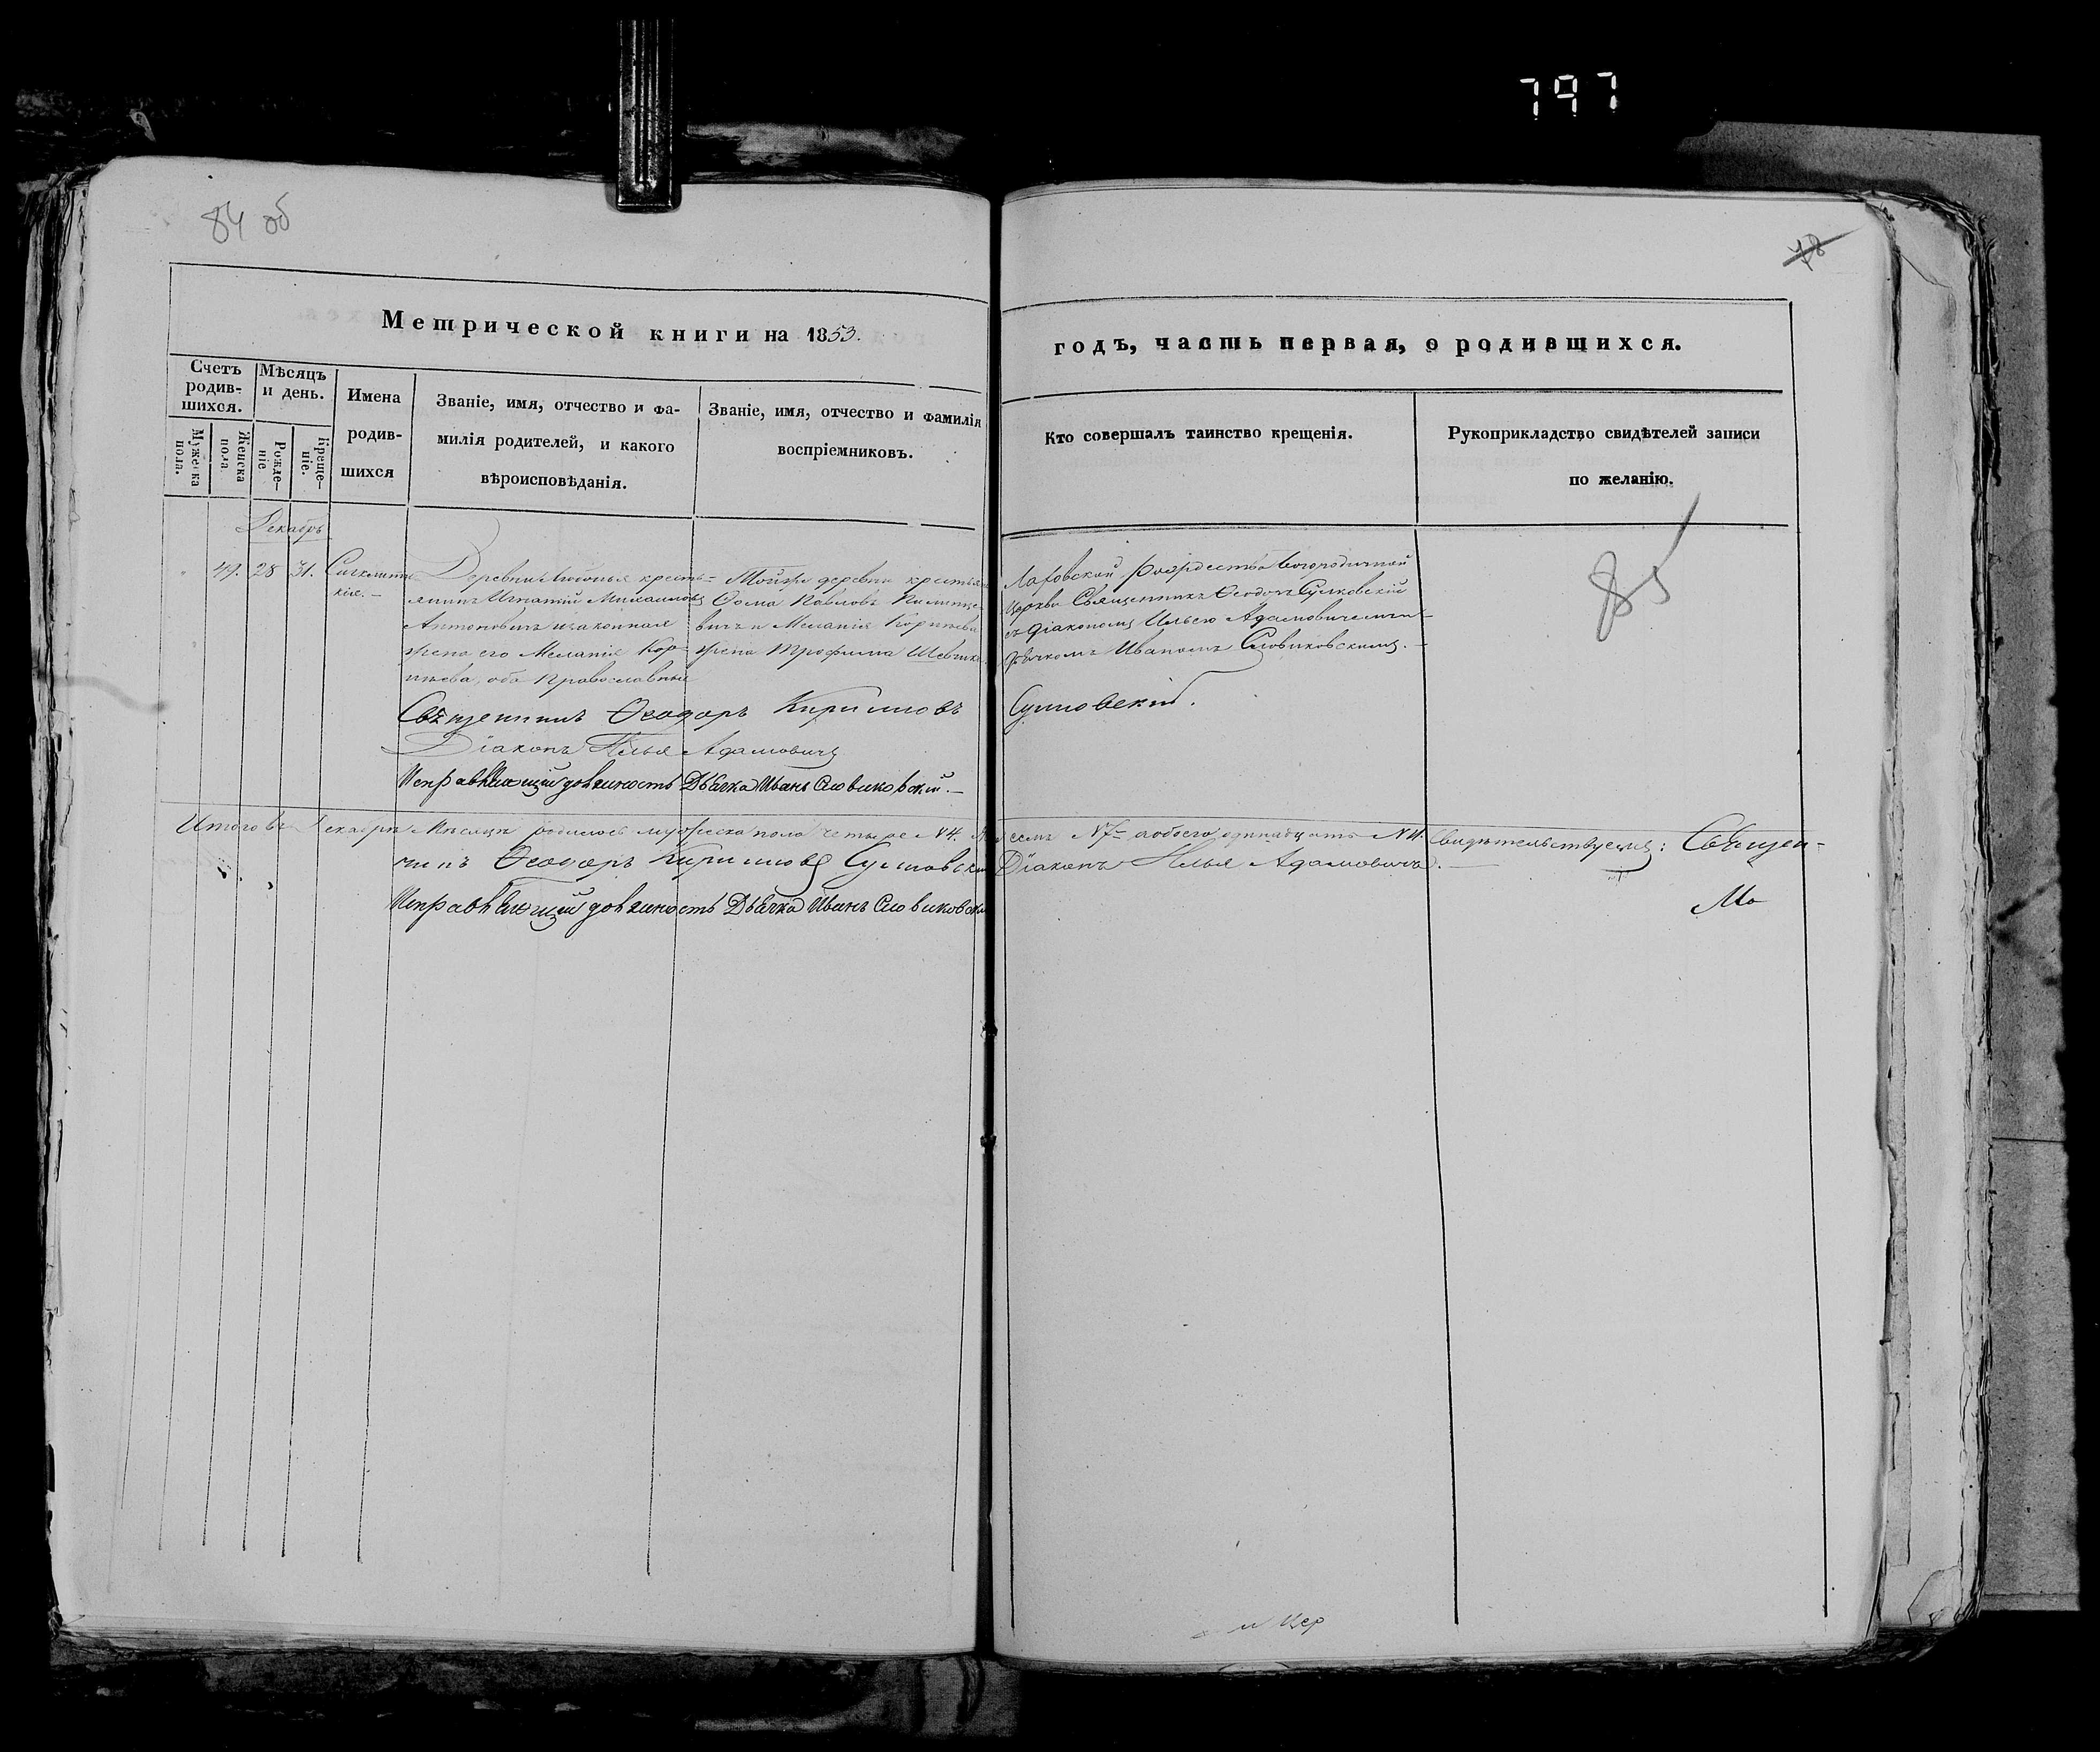 797
84 об
78
Метрической книги на 1853.
годъ, часть первая, о родившихся.
Счетъ родив-шихся.
Мѣсяцъ и день.
Имена родив-шихся
Званіе, имя, отчество и фа-
милія родителей, и какого
вѣроисповѣданія.
Званіе, имя, отчество и фамилія
воспріемниковъ.
Кто совершалъ таинство крещенія.
Рукоприкладство свидѣтелей записи
по желанію.
Мужеска пола.
Женска пола
Рожде-ніе
Креще-ніе.
Декабрь
49. 28 31.
Деревни крестъ=
янинъ Игнатій Михаиловъ
Антоновичъ и законная
жена его Меланія Кор-
нѣева, оба Православные
Тойже деревни крестьян
Ѳома Павловъ
вичъ и Меланія Корнѣева
жена Трофима Шевчика
Рождество Богородичной
Церкви Священникъ Ѳеодоръ Сулковскій
съ Діакономъ Ильею Адамовичемъ и
дьячкомъ Иваномъ Словиковскимъ.
85
Священникъ Ѳеодоръ Кирилловъ
Діаконъ Илья Адамовичъ
Исправляющій должность Дьячка Иванъ Словиковскій.
Итого въ Декабрѣ Мѣсяцѣ родилось мужеска пола четыре N 4.
семь N 7 а обоего одинадцать N 11. Свидѣтельствуемъ: Священ-
никъ Ѳеодоръ Кирилловъ
Діаконъ Илья Адамовичъ.
Исправляющій должность Дьячка Иванъ Словиковскій
Мо
и Цер